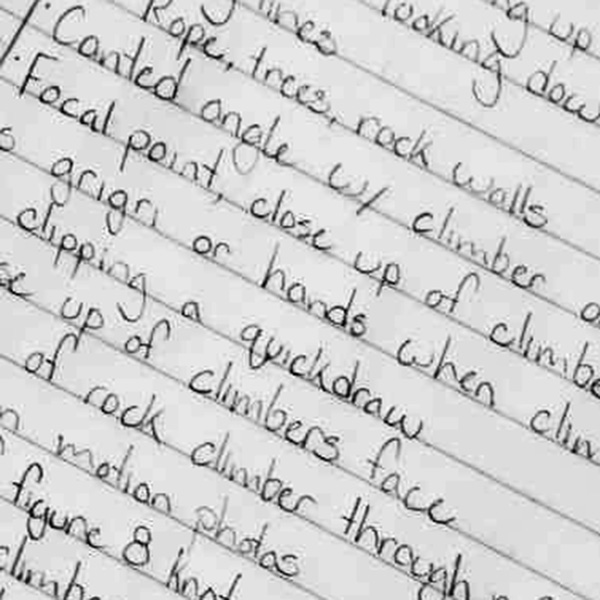 up
looking dow
lines
Rope, trees, rock walls
· Canted angle w/ climber
· Focal point, close up of climbe
grigri or hands when clim
clipping a quickdraw
se up of climbers face
of rock climber through
motion photos
figure 8 knot
climbe